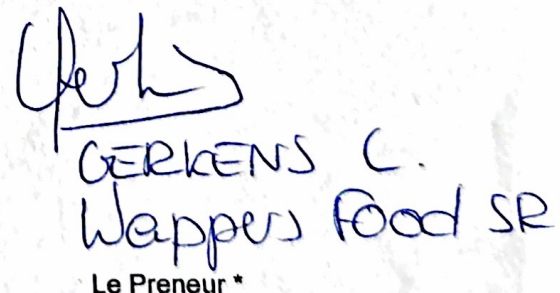 GERKENS C.
Wappers Food SR
Le Preneur *